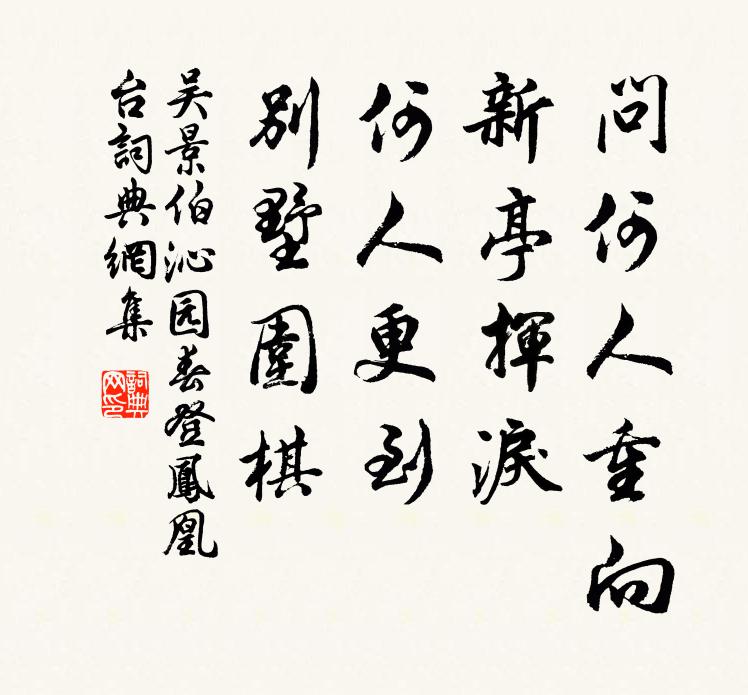 問何人重向
新亭揮淚
何人更到
別墅圍棋
吴景伯沁园春登鳳凰
台詞典網集
詞典
网印